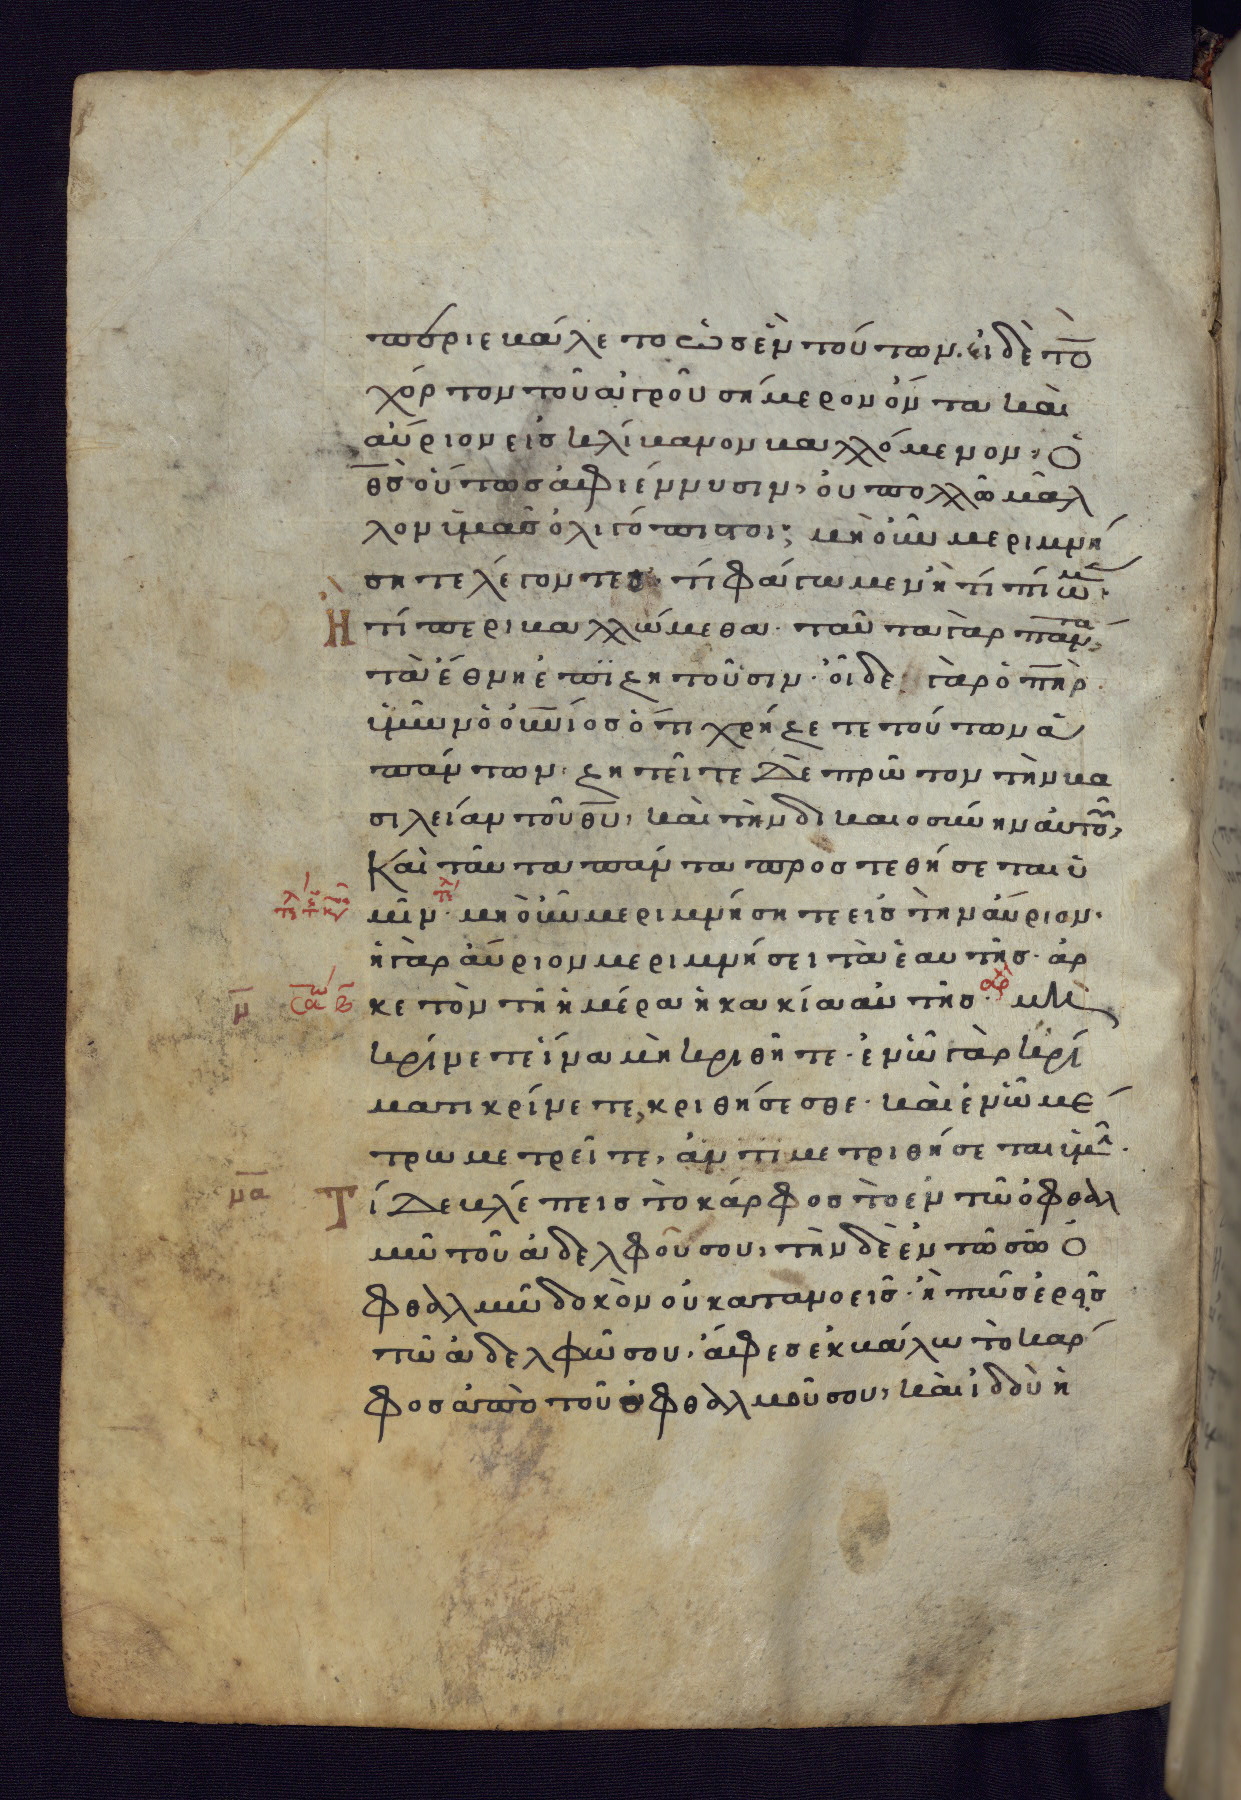 περιεβάλετο ὡς ἓν τούτων. εἰ δὲ τὸ
χόρτον τοῦ ἀγροῦ σήμερον ὄντα καὶ
αὔριον εἰς κλίβανον βαλλόμενον, ὁ
θ̅ς̅ οὕτως ἀμφιέννυσιν, οὐ πολλῶ μᾶλ
λον ὑμᾶς ὀλιγόπιστοι; μὴ οὖν μεριμνή
σητε λέγοντες· τί φάγωμεν ἢ τί πίωμεν·
Ἢ τί περιβαλλώμεθα· ταῦτα γὰρ πάντα,
τὰ ἔθνη ἐπιζητοῦσιν· οἶδε γὰρ ὁ π̅η̅ρ
ὑμῶν ὁ οὐ̅νιος ὅτι χρήζετε τούτων ἁ
πάντων· ζητεῖτε δὲ πρῶτον τὴν βα
σιλείαν τοῦ θ̅υ̅, καὶ τὴν δικαιοσύνην αὐτοῦ,
Καὶ ταῦτα πάντα προστεθήσεται ὑ
μῖν· μὴ οὖν μεριμνήσητε εἰς τὴν αὔριον·
ἡ γὰρ αὔριον μεριμνήσει τὰ ἑαυτῆς· ἀρ
μ̅ κετὸν τῆ ἡμέρα ἡ κακία αὐτῆς· μὴ
κρίνετε ἵνα μὴ κριθῆτε· ἐν ὧ γὰρ κρί
ματι κρίνετε, κριθήσεσθε· καὶ ἐν ὧ μέ
τρω μετρεῖτε, ἀντιμετριθήσεται ὑμῖν·
μ̅α̅ Τί δὲ βλέπεις τὸ κάρφος τὸ ἐν τῶ ὀφθαλ
μῶ τοῦ ἀδελφοῦ σου, τὴν δὲ ἐν τῶ σῶ ὀ
φθαλμῶ δοκὸν οὐ κατανοεῖς· ἢ πῶς ἐρεῖς
τῶ ἀδελφῶ σου· ἄφες ἐκβάλω τὸ κάρ
φος ἀπὸ τοῦ ὀφθαλμοῦ σου, καὶ ἰδοὺ ἡ